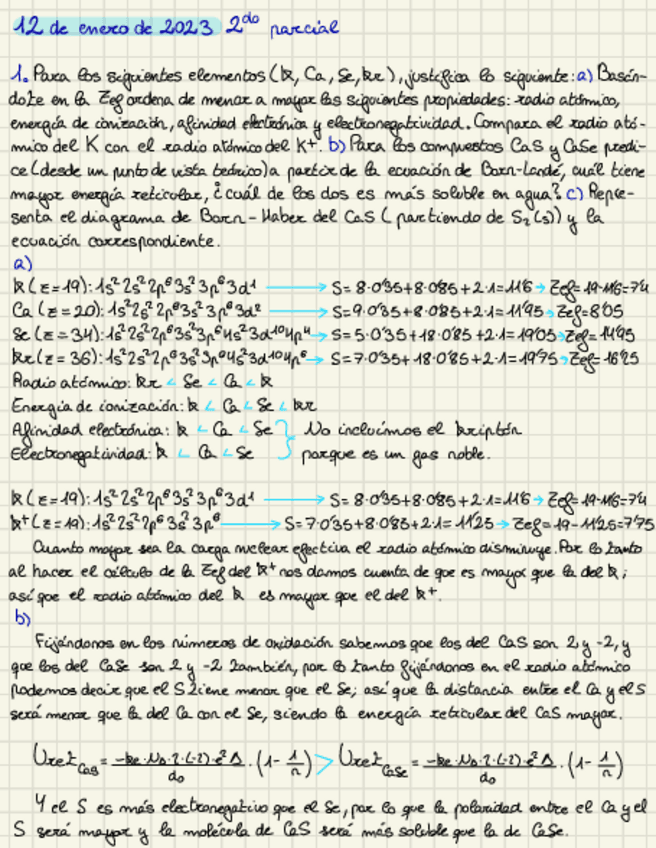 12 de enero de 2023 2do parcial
1. Para los siguientes elementos (K, Ca, Se, Kr), justifica lo siguiente: a) Basán-
dote en la Zef ordena de menor a mayor las siguientes propiedades: radio atómico,
energía de ionización, afinidad electrónica y electronegatividad. Compara el radio ató-
mico del K con el radio atómico del K⁺. b) Para los compuestos CaS y CaSe predi-
ce (desde un punto de vista teórico) a partir de la ecuación de Born-Landé, cuál tiene
mayor energía reticular, ¿cuál de los dos es más soluble en agua? c) Repre-
senta el diagrama de Born-Haber del CaS (partiendo de S₂(s)) y la
ecuación correspondiente.
a)
K (z=19): 1s²2s²2p⁶3s²3p⁶3d¹ → S= 8·0'35+8·0'85+2·1=11'6 → Zef= 19-11'6=7'4
Ca (z=20): 1s²2s²2p⁶3s²3p⁶3d² → S=9·0'35+8·0'85+2·1=11'95 → Zef=8'05
Se (z=34): 1s²2s²2p⁶3s²3p⁶4s²3d¹⁰4p⁴ → S=5·0'35+18·0'85+2·1=19'05 → Zef=14'95
Kr (z=36): 1s²2s²2p⁶3s²3p⁶4s²3d¹⁰4p⁶ → S=7·0'35+18·0'85+2·1=19'75 → Zef=16'25
Radio atómico: Kr < Se < Ca < K
Energía de ionización: K < Ca < Se < Kr
Afinidad electrónica: K < Ca < Se } No incluímos el kriptón
Electronegatividad: K < Ca < Se } porque es un gas noble.
K (z=19): 1s²2s²2p⁶3s²3p⁶3d¹ → S= 8·0'35+8·0'85+2·1=11'6 → Zef= 19-11'6=7'4
K⁺ (z=19): 1s²2s²2p⁶3s²3p⁶ → S=7·0'35+8·0'85+2·1=11'25 → Zef=19-11'25=7'75
Cuanto mayor sea la carga nuclear efectiva el radio atómico disminuye. Por lo tanto
al hacer el cálculo de la Zef del K⁺ nos damos cuenta de que es mayor que la del K;
así que el radio atómico del K es mayor que el del K⁺.
b)
Fijándonos en los números de oxidación sabemos que los del CaS son 2 y -2, y
que los del CaSe son 2 y -2 también, por lo tanto fijándonos en el radio atómico
podemos decir que el S tiene menor que el Se; así que la distancia entre el Ca y el S
será menor que la del Ca con el Se, siendo la energía reticular del CaS mayor.
Uret CaS = -ke·NA·2·(-2)·e²A/d₀ · (1- 1/n) > Uret CaSe = -ke·NA·2·(-2)·e²A/d₀ · (1- 1/n)
Y el S es más electronegativo que el Se, por lo que la polaridad entre el Ca y el
S será mayor y la molécula de CaS será más soluble que la de CaSe.